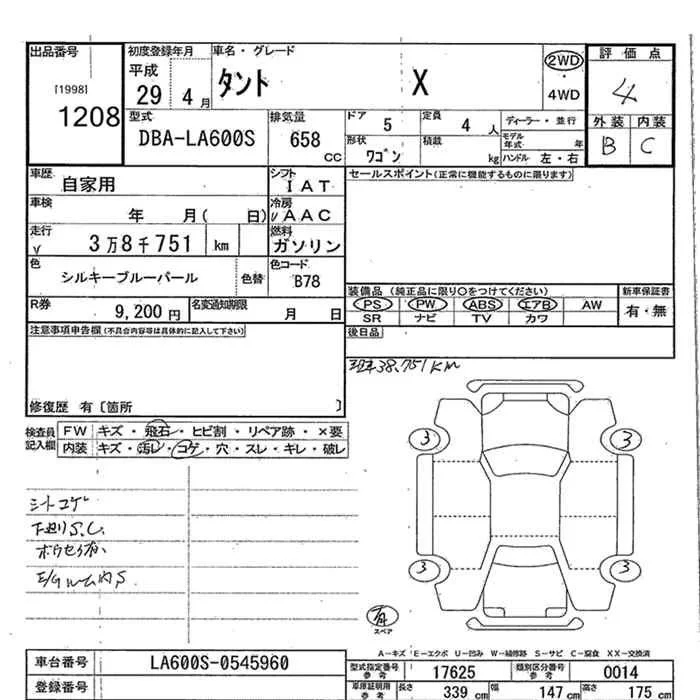 出品番号 初度登録年月 車名・グレード 評価点
[1998] 平成 タント X 2WD ・ 4WD 4
1208 29 4月
型式 排気量 ドア 定員 ディーラー・並行 外装 内装
DBA-LA600S 658 CC 5 4人 モデル年式 年 B C
形状 積載
ワゴン kg ハンドル 左・右
車歴 シフト セールスポイント(正常に機能するものに限ります)
自家用 IAT
車検 年 月( 日) 冷房 AAC
走行 燃料
√ 3万8千751 km ガソリン
色 シルキーブルーパール 色替 色コード B78
装備品(純正品に限り○をつけてください) 新車保証書
R券 9,200円 名変通知期限 月 日
PS PW ABS エアB AW 有・無
SR ナビ TV カワ
注意事項申告欄(不具合内容等は具体的に記入して下さい) 後日品
38.751km
修復歴 有〔箇所 〕
検査員記入欄 FW キズ・飛石・ヒビ割・リペア跡・×要
内装 キズ・汚レ・コゲ・穴・スレ・キレ・破レ
3 3
シートコゲ
下廻りS.C.
3 3
スペア
A-キズ E-エクボ U-凹み W-補修跡 S-サビ C-腐食 XX-交換済
車台番号 LA600S-0545960 型式指定番号参考 17625 類別区分番号参考 0014
登録番号 車庫証明用参考 長さ 339 cm 幅 147 cm 高さ 175 cm